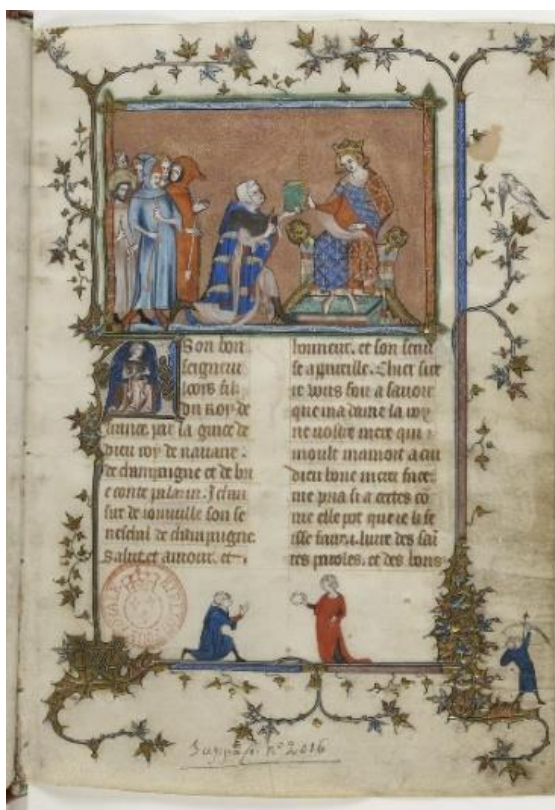 1
Son bon
seigneur
looys filz
du Roy de
france. par la grace de
dieu roy de nauarre.
de champaigne et de brie
conte palazin. Jehan
sire de ionuille son se
neschal de champaigne
Salut et amour. et
honneur. et son seruise
appareille. Chier sire
ie vous foiz a sauoir
que ma dame la roy
ne vostre mere qui
moult mamoit a cui
dieu bone merci face.
me pria si a certes co
me elle pot que ie li fe
isse faire .i. liure des sai
tes paroles. et des bons
Suppl. fr. n° 2016